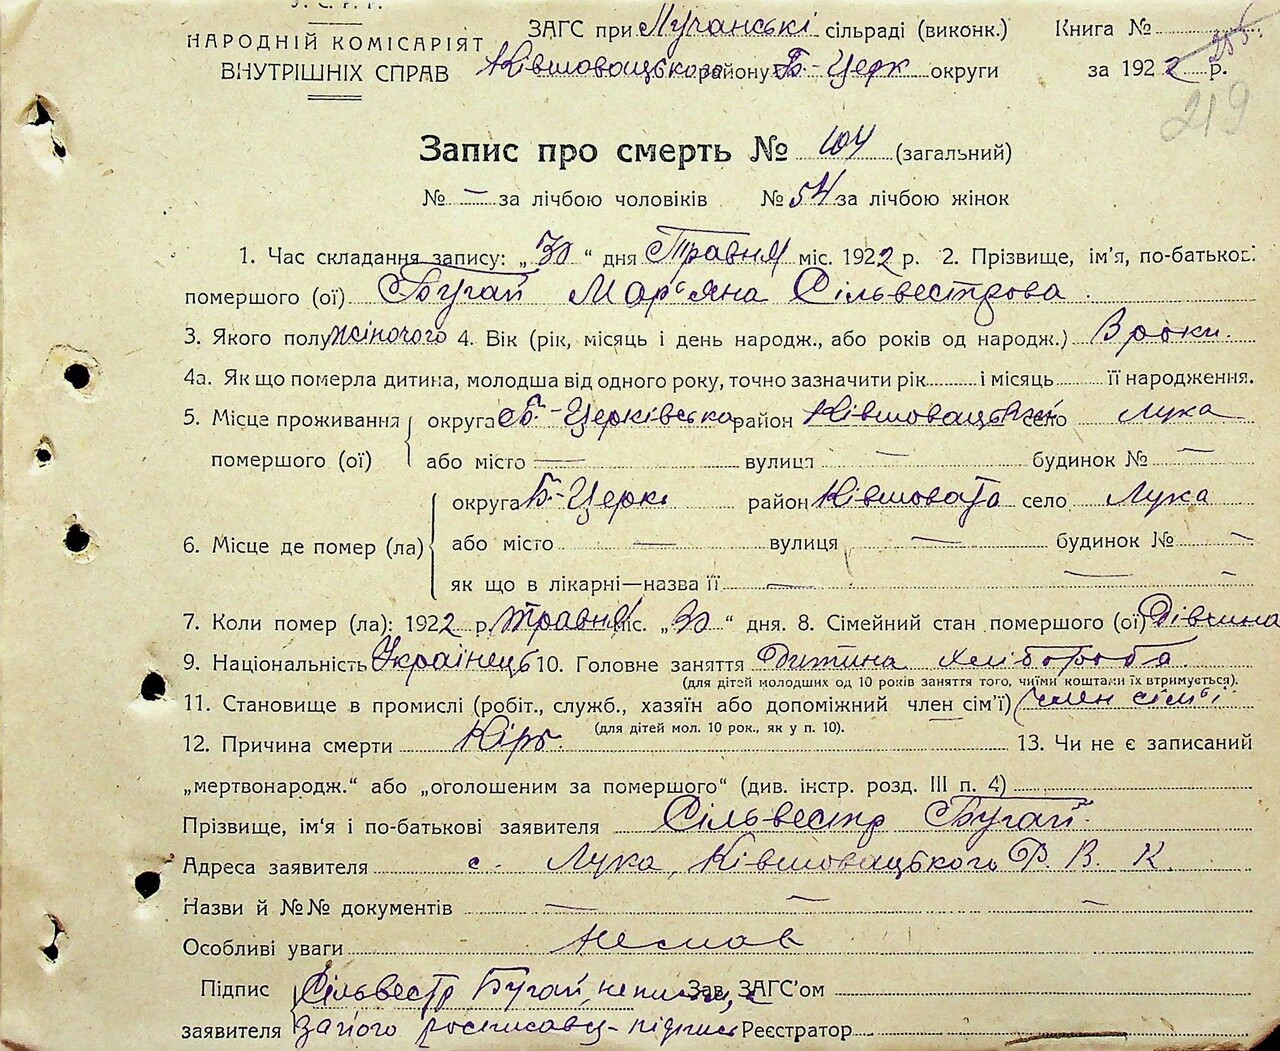 У.С.Р.Р.
НАРОДНІЙ КОМІСАРІЯТ
ВНУТРІШНІХ СПРАВ
ЗАГС при Лучанські сільраді (виконк.) Книга №
Ківшовацького району Б-Церк округи за 1922 р.
255
219
Запис про смерть № 104 (загальний)
№ — за лічбою чоловіків № 54 за лічбою жінок
1. Час складання запису: „30“ дня Травня міс. 1922 р. 2. Прізвище, ім'я, по-батькові
помершого (ої) Бугай Мар'яна Сільвестрова.
3. Якого полу жіночого 4. Вік (рік, місяць і день народж., або років од народж.) 3 роки.
4а. Як що померла дитина, молодша від одного року, точно зазначити рік і місяць її народження.
5. Місце проживання помершого (ої) округа Б-Церківська район Ківшовацький село Лука
або місто — вулиця — будинок № —
6. Місце де помер (ла) округа Б-Церк район Ківшовата село Лука
або місто — вулиця — будинок № —
як що в лікарні—назва її — — —
7. Коли помер (ла): 1922 р. травня міс. „30“ дня. 8. Сімейний стан помершого (ої) Дівчина
9. Національність Українець 10. Головне заняття Дитина хлібороба.
(для дітей молодших од 10 років заняття того, чиїми коштами їх втримується).
11. Становище в промислі (робіт., служб., хазяїн або допоміжний член сім'ї) член сім'ї
(для дітей мол. 10 рок., як у п. 10).
12. Причина смерти Кір. 13. Чи не є записаний
„мертвонародж.“ або „оголошеним за помершого“ (див. інстр. розд. III п. 4)
Прізвище, ім'я і по-батькові заявителя Сільвестр Бугай.
Адреса заявителя с. Лука, Ківшовацького Р. В. К.
Назви й №№ документів — — —
Особливі уваги немав
Підпис заявителя Сільвестр Бугай, Зав. ЗАГС'ом
за його росписавсь підпись Реєстратор